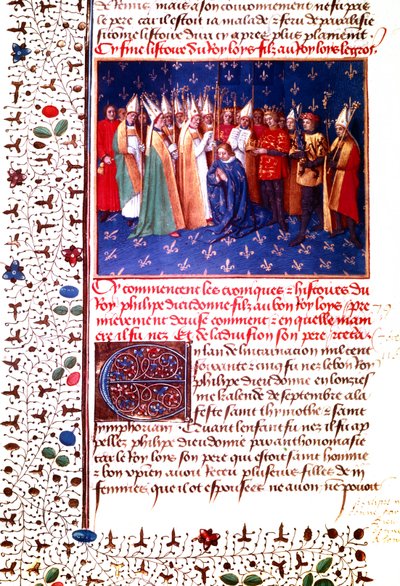 de Reins mais a son couronnement ne fu pas
le pere car il estoit ia malade
si come listoire dira cy apres plus plainement
Cy fine listoire du Roy loys filz au Roy loys le gros
Cy commencent les croniques z histoires du
Roy philipe dieudonne filz au bon Roy loys pre
mierement devise comment z en quelle mani
ere il fu nez Et de lavision son pere
En lan de lincarnacion mil cent
soixante z cinq fu ne le bon Roy
Philipe dieudonne en lonzies
me kalende de septembre a la
feste saint thymothe z saint
simphorian Quant lenfant fu nez il fu ap
pellez philipe dieudonne par anthonomasie
car le Roy loys son pere qui estoit saint homme
z bon avoit Receu plusieurs filles de iii
femmes que il ot espousees ne avoir ne pouoit